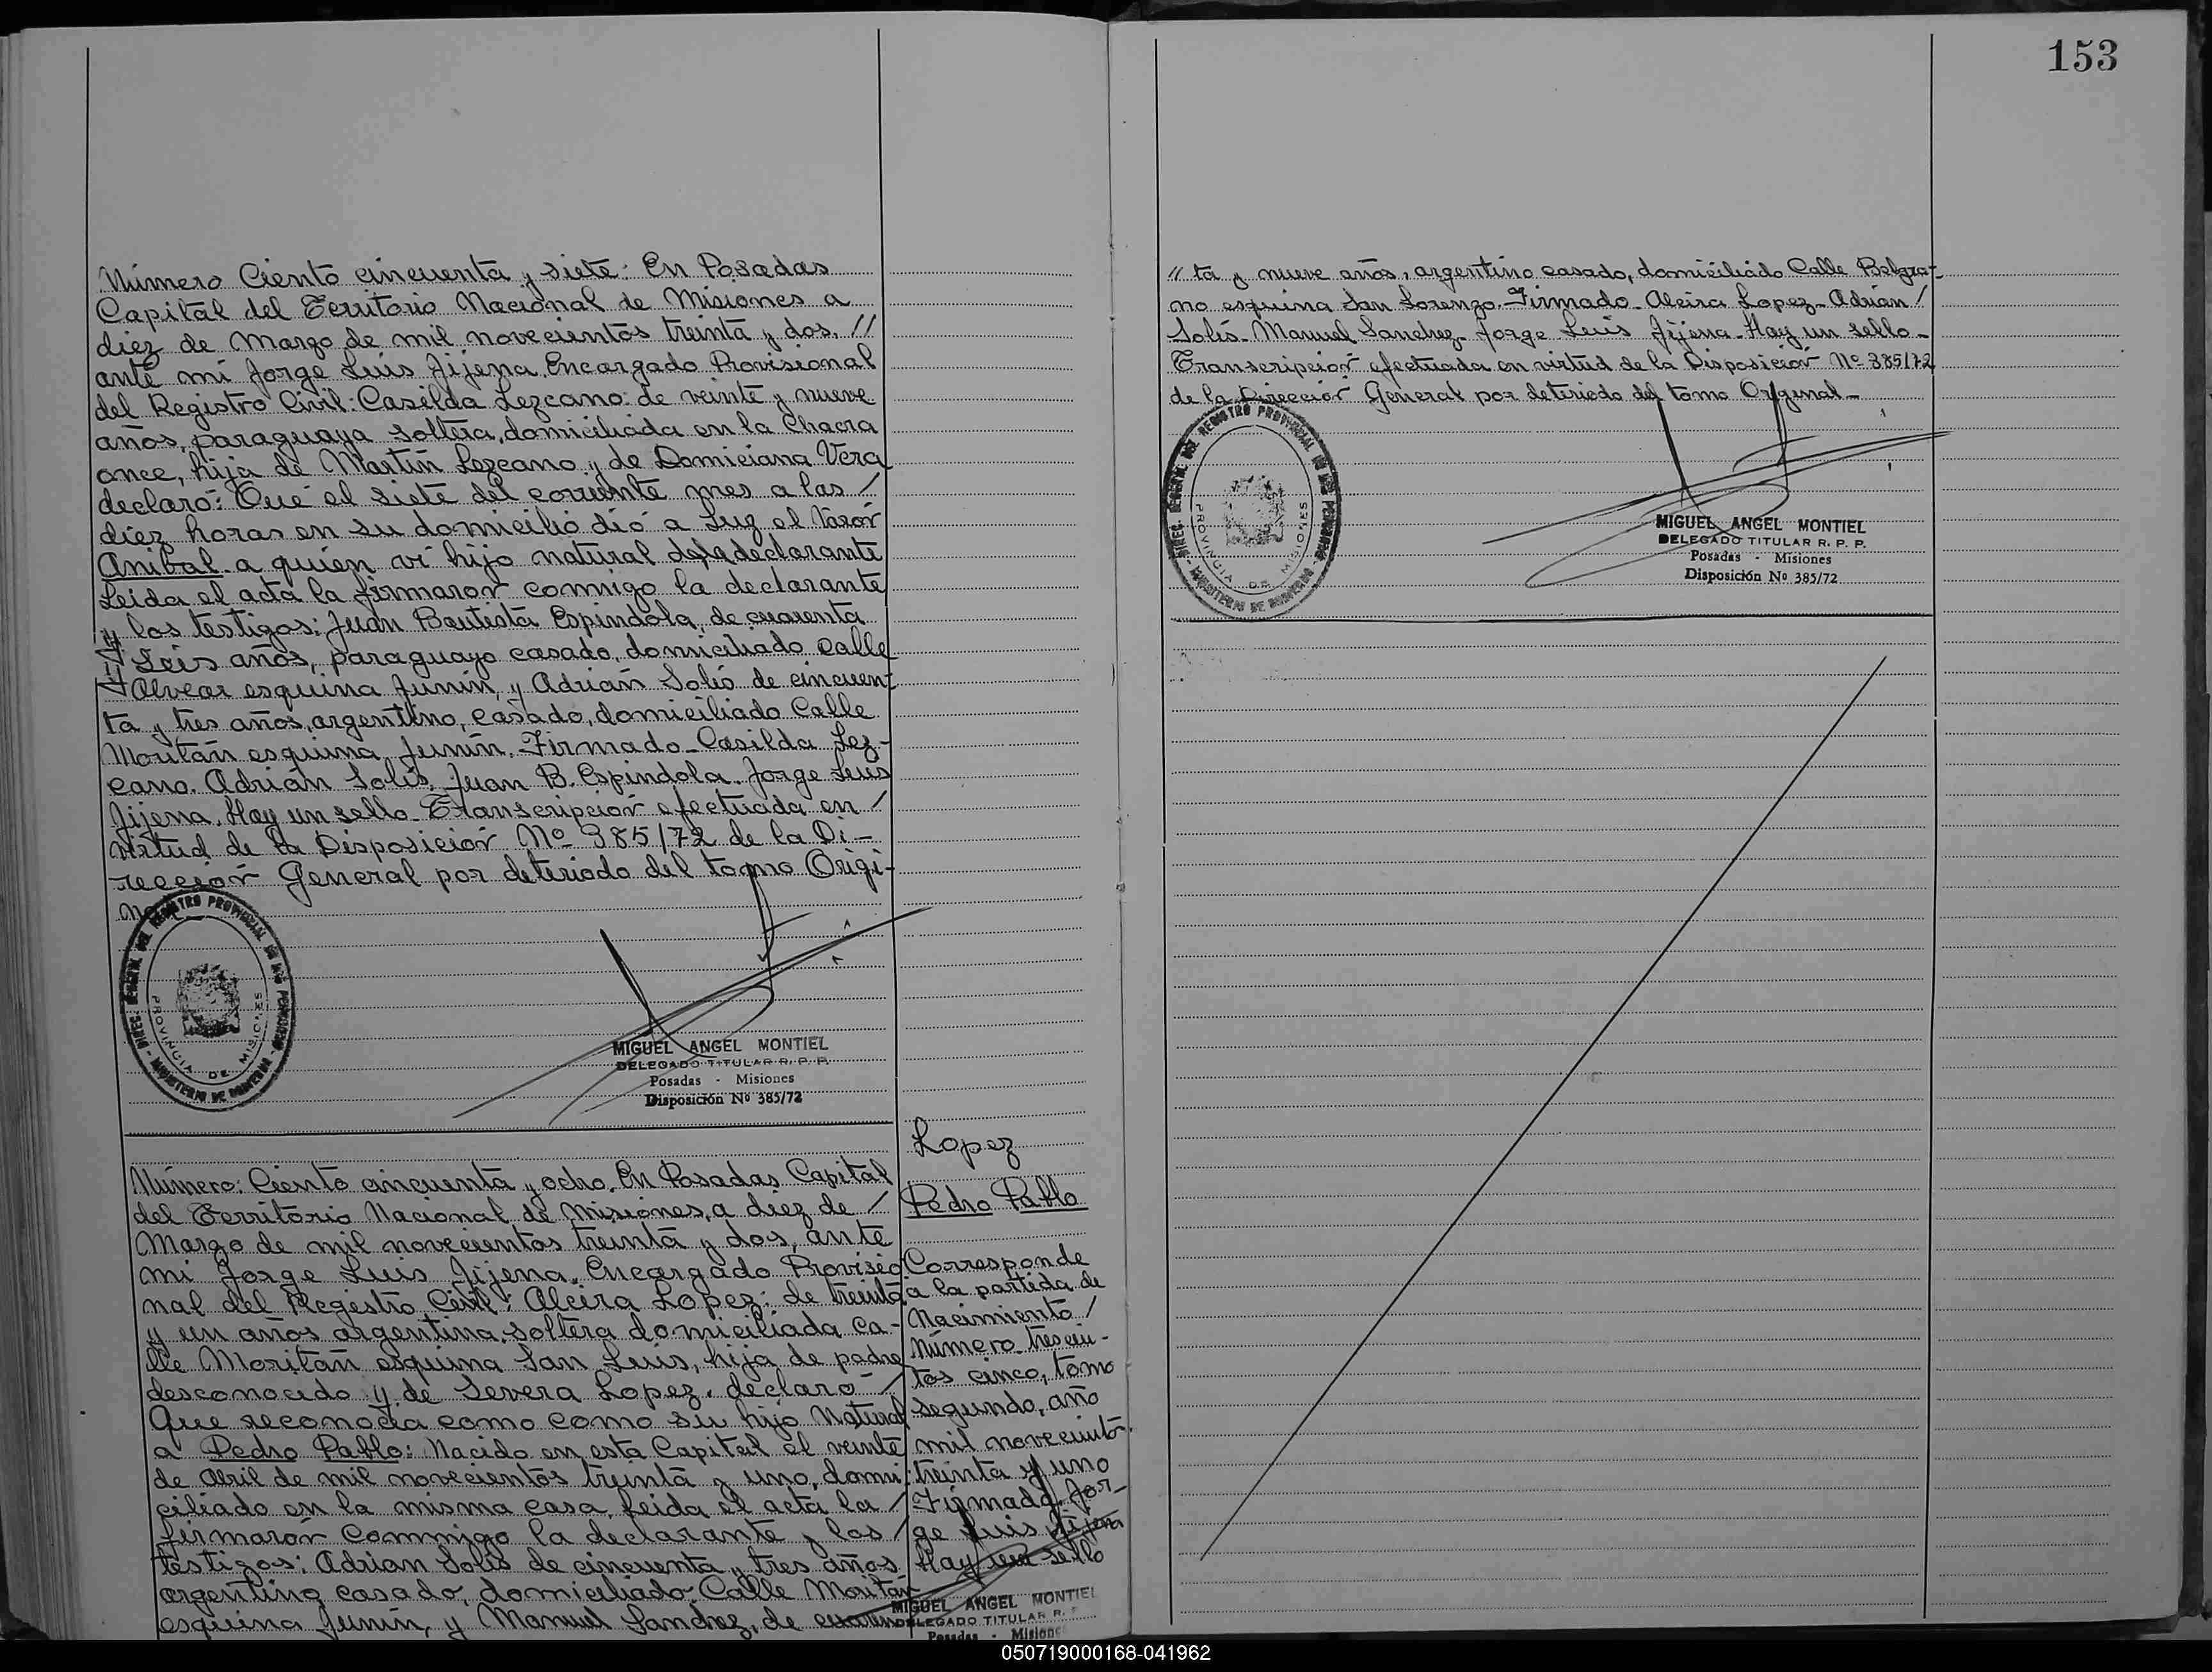 Número Ciento cincuenta y siete: En Posadas
Capital del Territorio Nacional de Misiones a
diez de Marzo de mil novecientos treinta y dos, //
ante mi Jorge Luis Jijena, Encargado Provisional
del Registro Civil: Casilda Lezcano: de veinte y nueve
años, paraguaya soltera, domiciliada en la Chacra
once, hija de Martín Lezcano y de Domiciana Vera
declaró: Que el siete del corriente mes a las /
diez horas en su domicilio dió a Luz el Varon
Anibal a quién ví hijo natural de la declarante
Leida el acta la firmaron comigo la declarante
y los testigos: Juan Bautista Espindola, de cuarenta
y Seis años, paraguayo casado, domiciliado calle
Alvear esquina Junín, y Adrian Solís de cincuen-
ta y tres años, argentino, casado, domiciliado Calle
Moritán esquina Junín. Firmado_Casilda Lez-
cano. Adrián Solís. Juan B. Espindola. Jorge Luis
Jijena. Hay un sello_Transcripción efectuada en /
virtud de la Disposición Nº 385/72 de la Di-
rección General por deteriodo del tomo Origi-
na
DIREC. GENERAL DEL REGISTRO PROVINCIAL DE LAS PERSONAS - MINISTERIO DE GOBIERNO -
PROVINCIA DE MISIONES
MIGUEL ANGEL MONTIEL
DELEGADO TITULAR R. P. P.
Posadas - Misiones
Disposición Nº 385/72
Número: Ciento cincuenta y ocho. En Posadas Capital
del Territorio Nacional de Misiones, a diez de /
Marzo de mil novecientos treinta y dos, ante
mi Jorge Luis Jijena. Encargado Provisio
nal del Registro Civil: Alcira Lopez: de treinta
y un años argentina, soltera domiciliada ca-
lle Moritán esquina San Luis, hija de padre
desconocido y de Severa Lopez. declaró /
Que reconocía como como su hijo Natural
a Pedro Pablo: Nacido en esta Capital el veinte
de Abril de mil novecientos treinta y uno, domi
ciliado en la misma casa, leida el acta la /
firmaron commigo la declarante y los /
testigos: Adrian Solís de cincuenta y tres años
argentino casado, domiciliado Calle Moritán
esquina Junín, y Manuel Sanchez, de cuaren
Lopez
Pedro Pablo
Corresponde
a la partida de
Nacimiento /
Número trescien-
tos cinco, tomo
segundo, año
mil noveciento
treinta y uno
Firmado, Jor-
ge Luis Jijena
Hay un sello
MIGUEL ANGEL MONTIEL
DELEGADO TITULAR R. P
Posadas - Misiones
153
// ta y nueve años, argentino casado, domiciliado Calle Belgra-
no esquina San Lorenzo. Firmado_Alcira Lopez_Adrian /
Solís_Manuel Sanchez_Jorge Luis Jijena_Hay un sello_
Transcripción efectuada en virtud de la Disposición Nº 385/72
de la Dirección General por deteriodo del tomo Original_
DIREC. GENERAL DEL REGISTRO PROVINCIAL DE LAS PERSONAS - MINISTERIO DE GOBIERNO -
PROVINCIA DE MISIONES
MIGUEL ANGEL MONTIEL
DELEGADO TITULAR R. P. P.
Posadas - Misiones
Disposición Nº 385/72
050719000168-041962